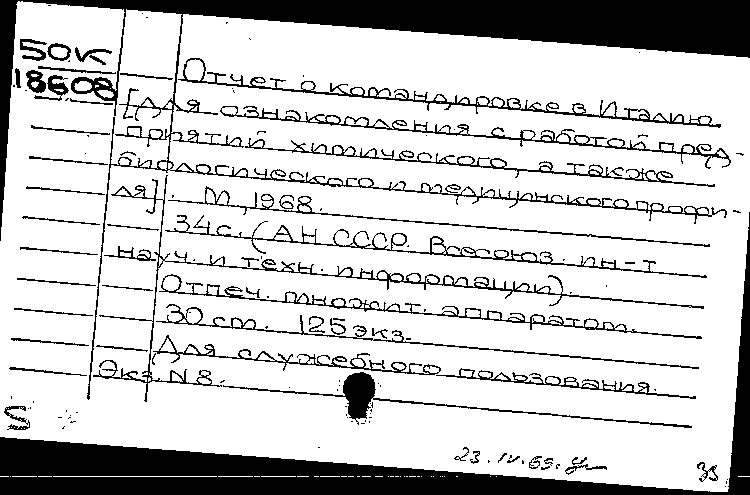 50К
18608
Отчет о командировке в Италию
[для ознакомления с работой пред-
приятий химического, а также
биологического и медицинского профи-
ля]. М., 1968.
34 с. (АН СССР. Всесоюз. ин-т
науч. и техн. информации).
Отпеч. множит. аппаратом.
30 см. 125 экз.
Для служебного пользования.
Экз. N 8.
S
23.IV.69.